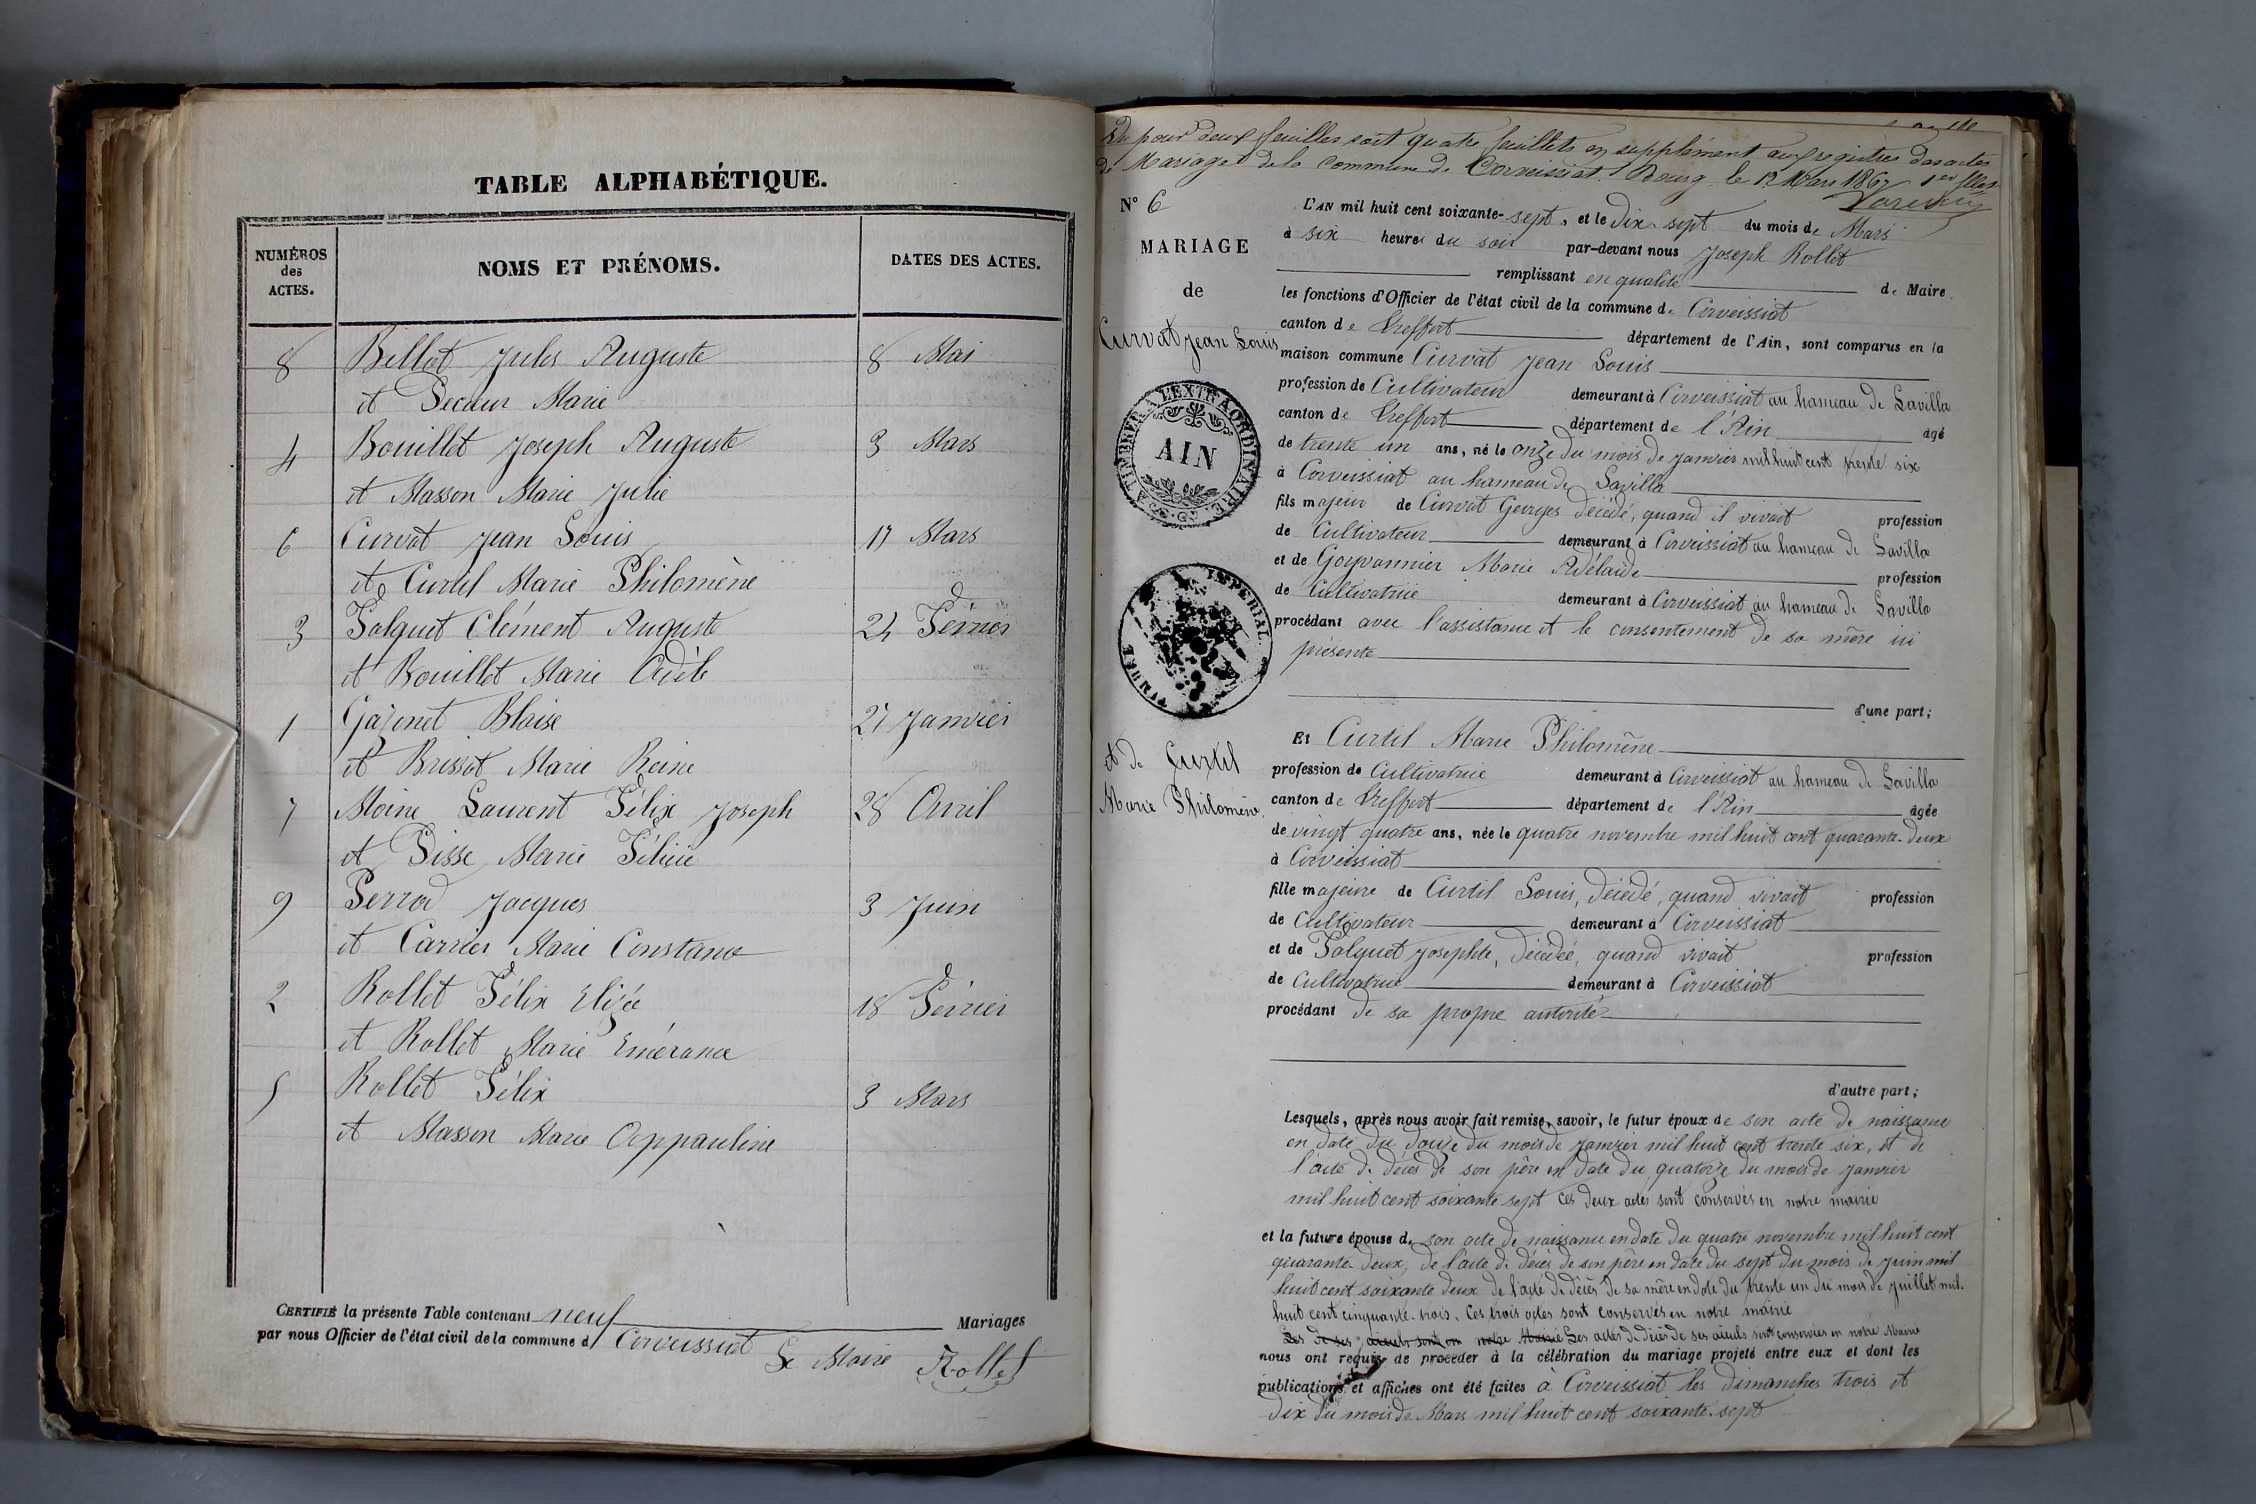 TABLE ALPHABÉTIQUE.
NUMÉROS des ACTES.
NOMS ET PRÉNOMS.
DATES DES ACTES.
8 Billot Jules Auguste 8 Mai
et Pecour Marie
4 Bouillet Joseph Auguste 3 Mars
et Masson Marie Julie
6 Curvat Jean Louis 17 Mars
et Curtil Marie Philomène
3 Falquet Clément Auguste 24 Février
et Bouillet Marie Adèle
1 Gazonet Blaise 27 Janvier
et Brissot Marie Reine
7 Moine Laurent Félix Joseph 28 Avril
et Pisse Marie Félicie
9 Perrod Jacques 3 Juin
et Carrier Marie Constance
2 Rollet Félix Elizée 18 Février
et Rollet Marie Emérance
5 Rollet Félix 3 Mars
et Masson Marie Appauline
CERTIFIÉ la présente Table contenant neuf Mariages
par nous Officier de l'état civil de la commune d Corveissiat
Le Maire Rollet
Vu pour deux feuilles soit quatre feuillets en supplément aux registres des actes
de Mariages de la commune de Corveissiat. Bourg le 12 Mars 1867
N° 6
MARIAGE
de
Curvat Jean Louis
A TIMBRER A L'EXTRAORDINAIRE
AIN
TIMBRE IMPERIAL
et de Curtil
Marie Philomène
L'AN mil huit cent soixante-sept, et le Dix sept du mois de Mars
à six heures du soir par-devant nous Joseph Rollet
remplissant en qualité de Maire
les fonctions d'Officier de l'état civil de la commune de Corveissiat
canton de Treffort département de l'Ain, sont comparus en la
maison commune Curvat Jean Louis
profession de Cultivateur demeurant à Corveissiat au hameau de Lavilla
canton de Treffort département de l'Ain âgé
de trente un ans, né le onze du mois de Janvier mil huit cent trente six
à Corveissiat au hameau de Lavilla
fils majeur de Curvat Georges décédé, quand il vivait profession
de Cultivateur demeurant à Corveissiat au hameau de Lavilla
et de Goyvannier Marie Adélaïde profession
de Cultivatrice demeurant à Corveissiat au hameau de Lavilla
procédant avec l'assistance et le consentement de sa mère ici
présente
d'une part;
Et Curtil Marie Philomène
profession de Cultivatrice demeurant à Corveissiat au hameau de Lavilla
canton de Treffort département de l'Ain âgée
de vingt quatre ans, née le quatre novembre mil huit cent quarante-deux
à Corveissiat
fille majeure de Curtil Louis, décédé, quand vivait profession
de Cultivateur demeurant à Corveissiat
et de Falquet Josephte, décédée, quand vivait profession
de Cultivatrice demeurant à Corveissiat
procédant de sa propre autorité
d'autre part;
Lesquels, après nous avoir fait remise, savoir, le futur époux de son acte de naissance
en date du douze du mois de Janvier mil huit cent trente six, et de
l'acte de décès de son père en date du quatorze du mois de Janvier
mil huit cent soixante sept ces deux actes sont conservés en notre mairie
et la future épouse de son acte de naissance en date du quatre novembre mil huit cent
quarante-deux, de l'acte de décès de son père en date du sept du mois de Juin mil
huit cent soixante deux de l'acte de décès de sa mère en date du trente un du mois de Juillet mil
huit cent cinquante-trois. Ces trois actes sont conservés en notre mairie
Les actes de décès de ses aïeuls sont conservés en notre Mairie
nous ont requis de procéder à la célébration du mariage projeté entre eux et dont les
publications et affiches ont été faites à Corveissiat les dimanches trois et
dix du mois de Mars mil huit cent soixante-sept